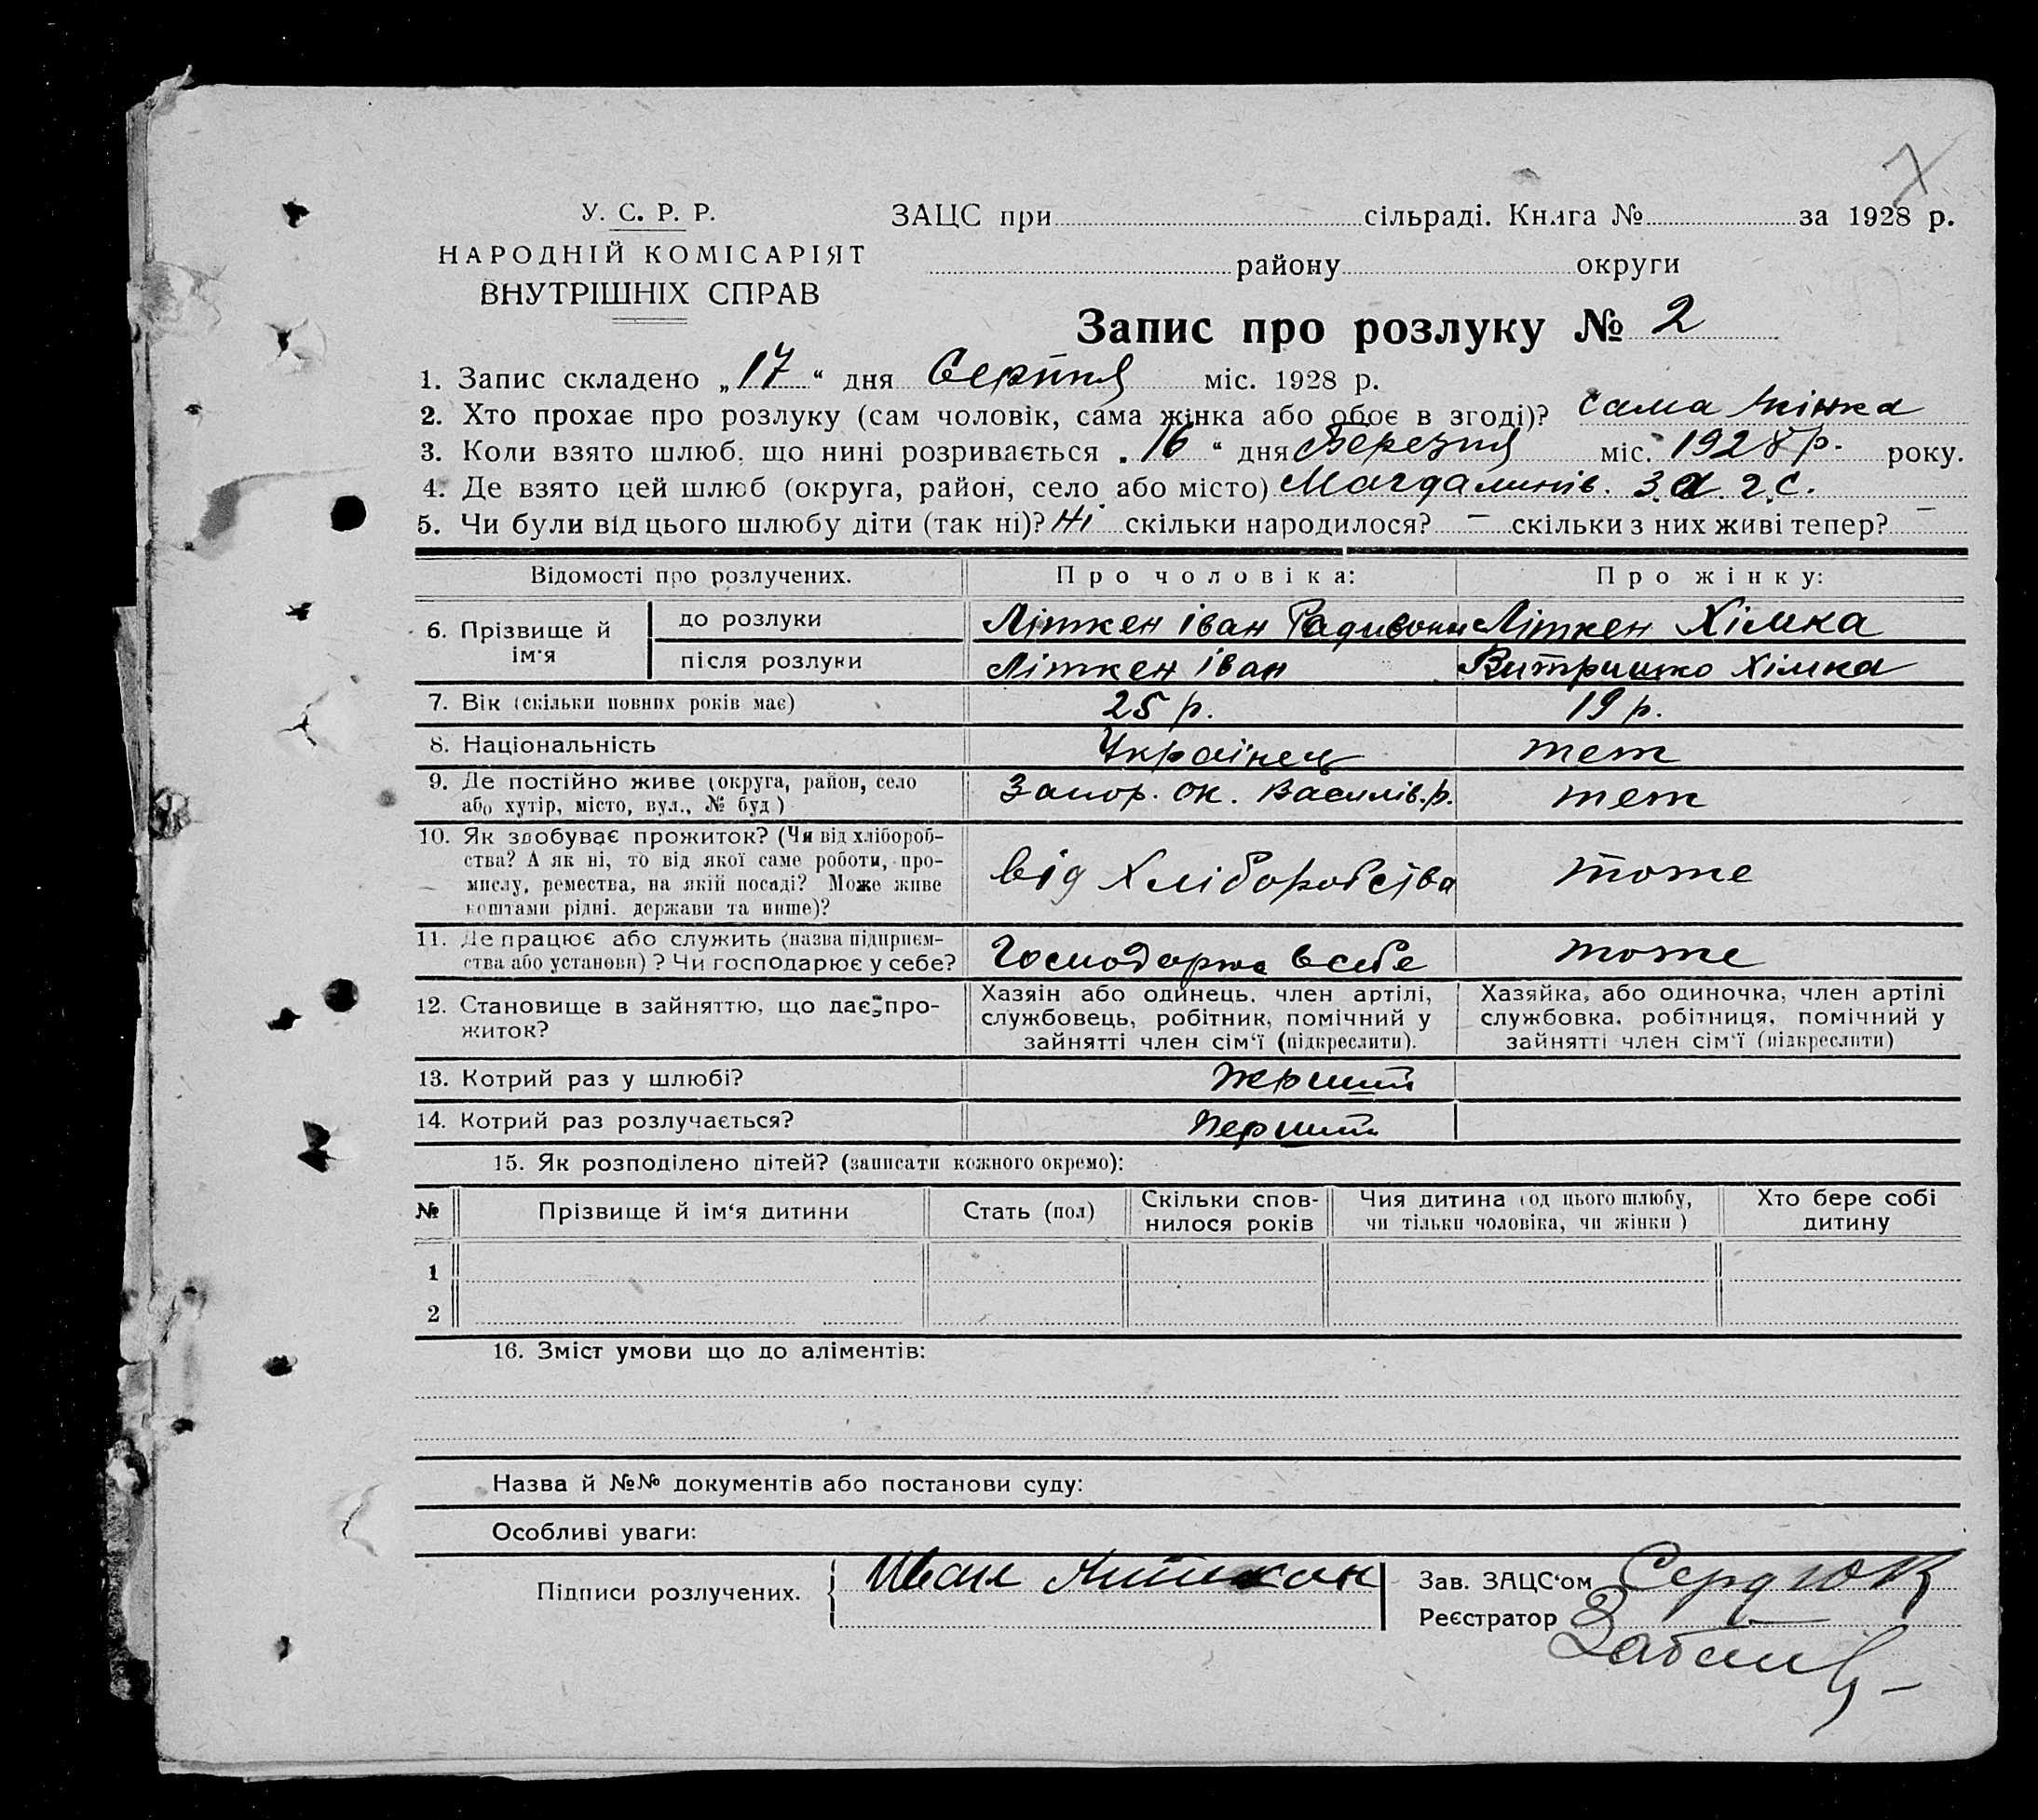 7
У. С. Р. Р.
НАРОДНІЙ КОМІСАРІЯТ
ВНУТРІШНІХ СПРАВ
ЗАЦС при сільраді. Книга № за 1928 р.
району округи
Запис про розлуку № 2
1. Запис складено „17“ дня Серпня міс. 1928 р.
2. Хто прохає про розлуку (сам чоловік, сама жінка або обоє в згоді)? сама жінка
3. Коли взято шлюб, що нині розривається „16“ дня Березня міс. 1928 р. року.
4. Де взято цей шлюб (округа, район, село або місто) Магдалинів. З.А.Г.С.
5. Чи були від цього шлюбу діти (так ні)? Ні скільки народилося? – скільки з них живі тепер? –
Відомості про розлучених. Про чоловіка: Про жінку:
6. Прізвище й ім'я
до розлуки Літкен Іван Радивони Літкен Хімка
після розлуки Літкен Іван Хімка
7. Вік (скільки повних років має) 25 р. 19 р.
8. Національність Українець теж
9. Де постійно живе (округа, район, село
або хутір, місто, вул., № буд) Запор. ок. Василів. р. теж
10. Як здобуває прожиток? (Чи від хлібороб-
ства? А як ні, то від якої саме роботи, про-
мислу, ремества, на якій посаді? Може живе
коштами рідні. держави та инше)? від Хліборобства тоже
11. Де працює або служить (назва підприєм-
ства або установи)? Чи господарює у себе? Господарже в себе тоже
12. Становище в зайняттю, що дає про-
житок?
Хазяїн або одинець. член артілі,
службовець, робітник, помічний у
зайнятті член сім'ї (підкреслити).
Хазяйка, або одиночка, член артілі
службовка. робітниця, помічний у
зайнятті член сім'ї (підкреслити)
13. Котрий раз у шлюбі? перший
14. Котрий раз розлучається? перший
15. Як розподілено дітей? (записати кожного окремо):
№ Прізвище й ім'я дитини Стать (пол) Скільки спов-
нилося років Чия дитина (од цього шлюбу,
чи тільки чоловіка, чи жінки) Хто бере собі
дитину
1
2
16. Зміст умови що до аліментів:
Назва й №№ документів або постанови суду:
Особливі уваги:
Підписи розлучених. Иван
Зав. ЗАЦС'ом Сердюк
Реєстратор